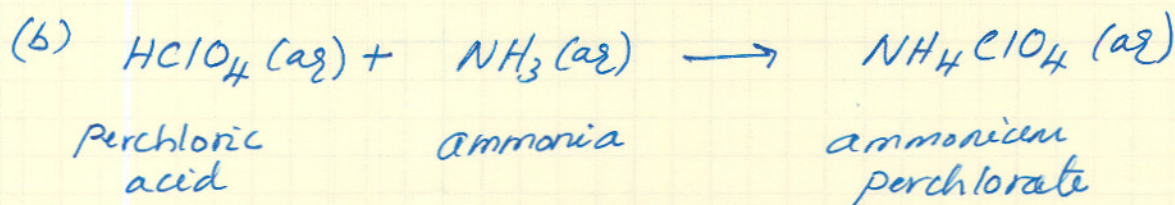 (b) HClO₄ (aq) + NH₃ (aq) ⟶ NH₄ClO₄ (aq)
perchloric ammonia ammonium
acid perchlorate